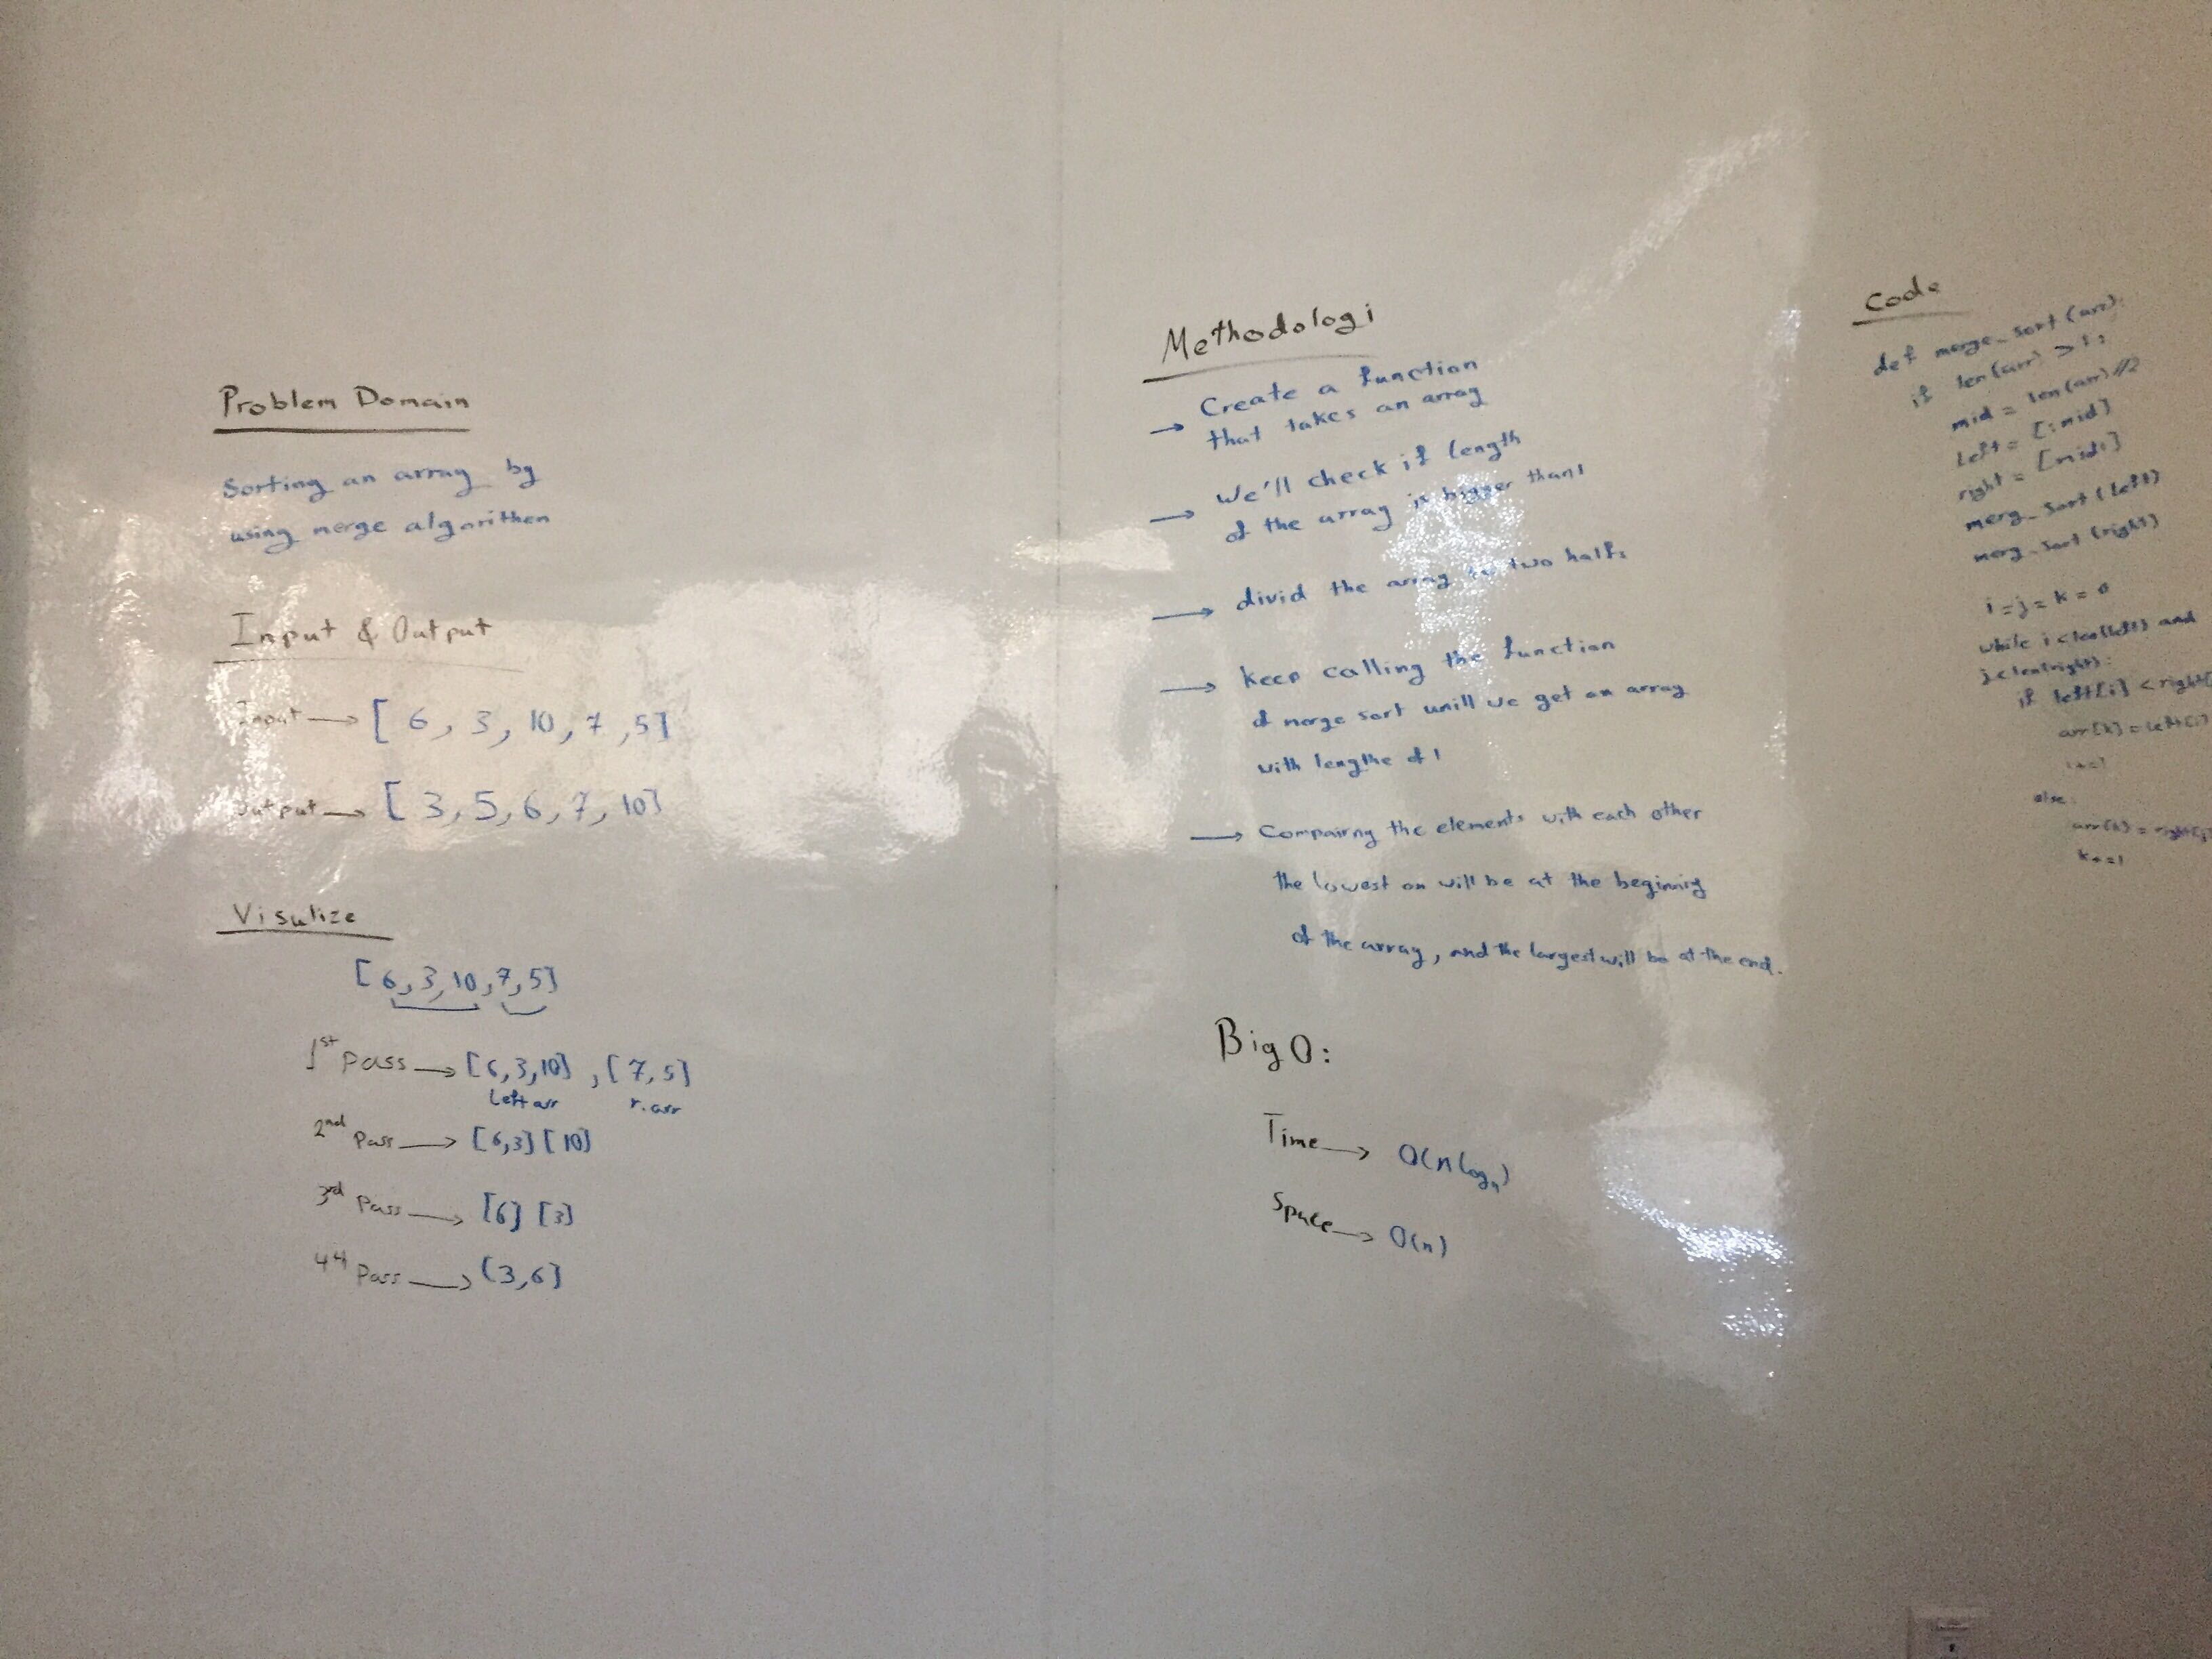 Problem Domain
Sorting an array by
using merge algorithem
Input & Output
Input → [ 6, 3, 10, 7, 5]
output → [ 3, 5, 6, 7, 10]
Visulize
[6, 3, 10, 7, 5]
1st pass → [6, 3, 10] , [7, 5]
left arr r. arr
2nd pass → [6,3] [10]
3rd pass → [6] [3]
44 pass → [3,6]
Methodologi
→ Create a function
that takes an array
→ We'll check if length
of the array is bigger than 1
→ divid the array to two halfs
→ keep calling the function
of merge sort unill we get an array
with lengthe of 1
→ Compairng the elements with each other
the lowest on will be at the beginnig
of the array, and the largest will be at the end.
Big O:
Time → O(n log n)
Space → O(n)
Code
def merge_sort (arr):
if len(arr) > 1:
mid = len(arr)//2
left = [:mid]
right = [mid:]
merg_sort (left)
merg_sort (right)
i = j = k = 0
while i < len(left) and
j < len(right):
if left[i] < right[
arr[k] = left[i]
i+=1
else:
arr[k] = right[j
k+=1